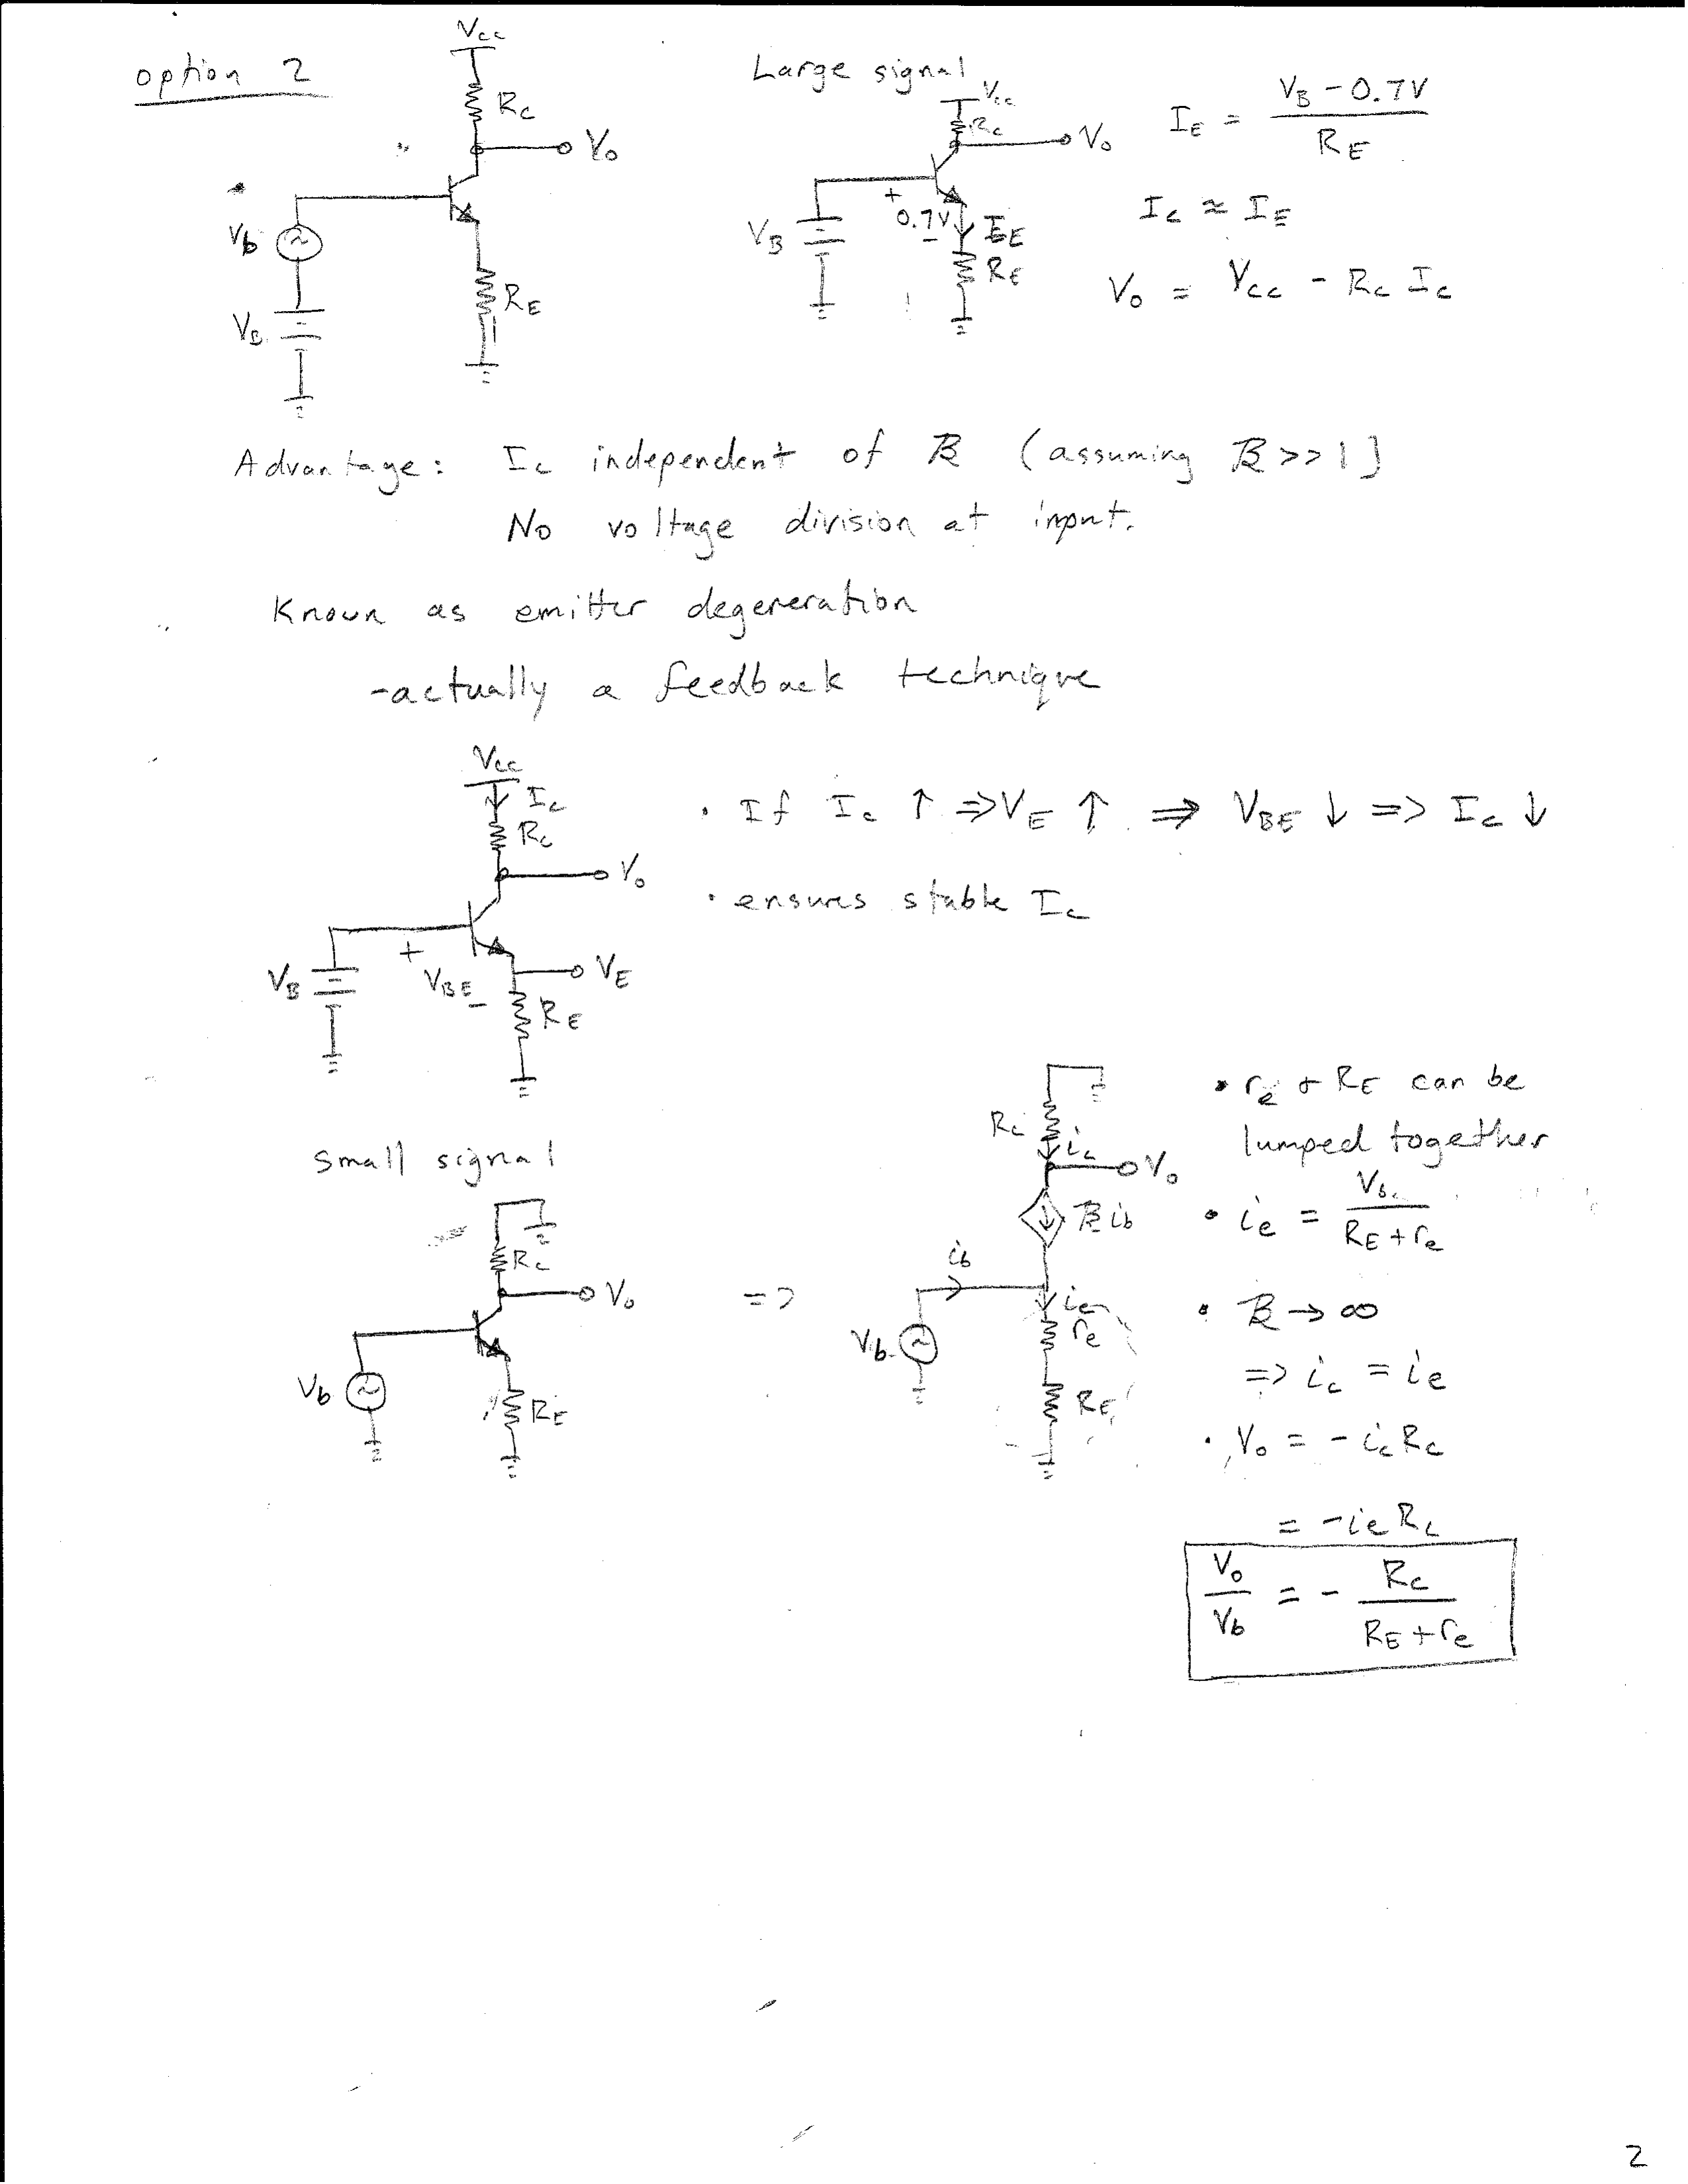 option 2
Vcc
Rc
Vo
Vb
VB
RE
Large signal
Vcc
Rc
Vo
VB
+
0.7V
-
IE
RE
IE = (VB - 0.7V) / RE
Ic ≈ IE
Vo = Vcc - Rc Ic
Advantage: Ic independent of β (assuming β >> 1)
No voltage division at input.
Known as emitter degeneration
- actually a feedback technique
Vcc
Ic
Rc
Vo
VB
+
VBE
-
VE
RE
• If Ic ↑ => VE ↑ => VBE ↓ => Ic ↓
• ensures stable Ic
small signal
Rc
Vo
Vb
RE
=>
Rc
ic
Vo
βib
ib
Vb
ie
re
RE
• re & RE can be
lumped together
• ie = Vb / (RE + re)
• β → ∞
=> ic = ie
• Vo = - ic Rc
= - ie Rc
Vo / Vb = - Rc / (RE + re)
2